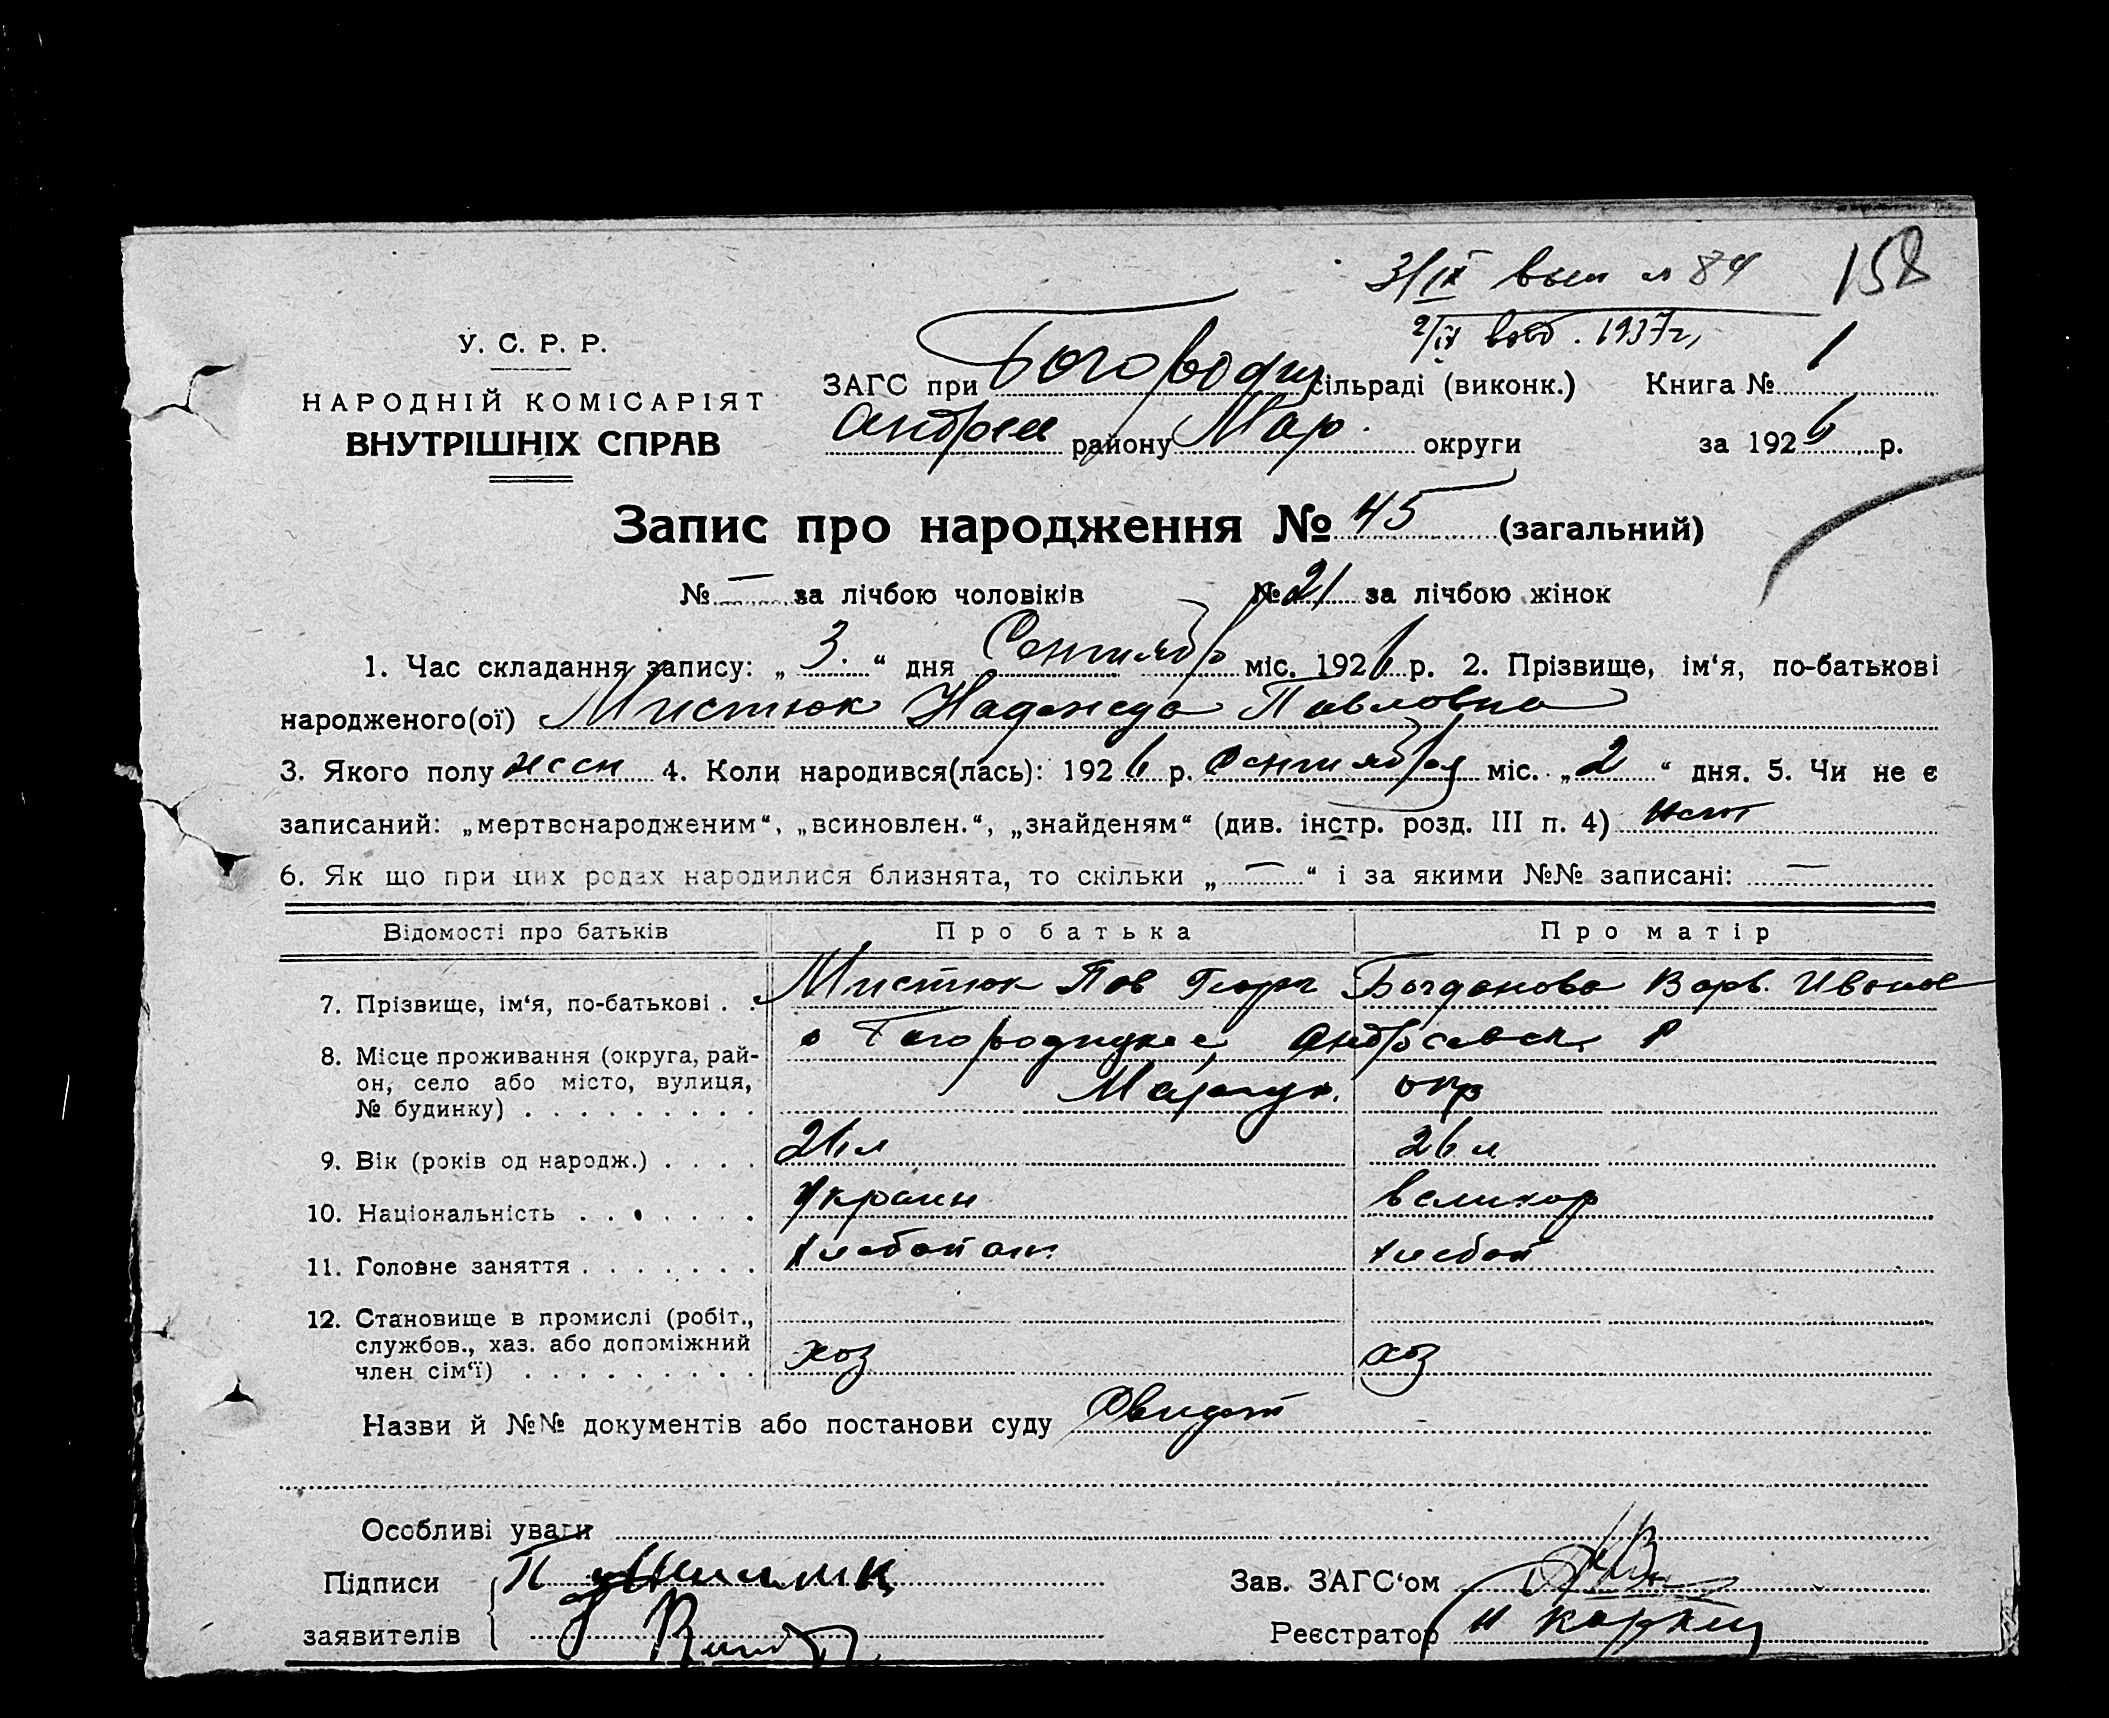 3/IX вып № 84 158
2/IX 1937 г.
У. С. Р. Р.
НАРОДНІЙ КОМІСАРІЯТ
ВНУТРІШНІХ СПРАВ
ЗАГС при сільраді (виконк.) Книга № 1
Андреев району Мар. округи за 1926 р.
Запис про народження № 45 (загальний)
№ — за лічбою чоловіків № 21 за лічбою жінок
1. Час складання запису: „ 3. “ дня Сентября міс. 1926 р. 2. Прізвище, ім‘я, по-батькові
народженого(ої) Мистюк Надежда Павловна
3. Якого полу жен 4. Коли народився(лась): 1926 р. Сентября міс. „ 2 “ дня. 5. Чи не є
записаний: „мертвонародженим“, „всиновлен.“, „знайденям“ (див. інстр. розд. III п. 4) нет
6. Як що при цих родах народилися близнята, то скільки „ — “ і за якими №№ записані: —
Відомості про батьків Про батька Про матір
7. Прізвище, ім‘я, по-батькові . . Мистюк Пав Георг Богданова Варв. Иванов
8. Місце проживання (округа, рай-
он, село або місто, вулиця,
№ будинку) . . . . . . . . .
с Андреевск. р
Мариуп. окр
9. Вік (років од народж.) . . . . 26 л 26 л
10. Національність . . . . . . . Украин великор
11. Головне заняття . . . . . . . хлебопаш. хлебоп
12. Становище в промислі (робіт.,
службов., хаз. або допоміжний
член сім‘ї) . . . . . . . . . хоз хоз
Назви й №№ документів або постанови суду
Особливі уваги
Підписи
заявителів
Зав. ЗАГС‘ом
Реєстратор